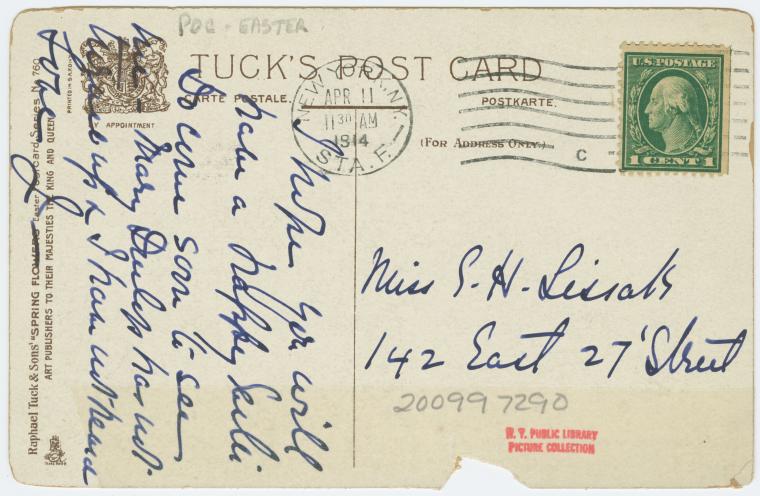 POC - EASTER
TUCK'S POST CARD
CARTE POSTALE.
POSTKARTE.
(FOR ADDRESS ONLY.)
BY APPOINTMENT
PRINTED IN SAXONY
Raphael Tuck & Sons' "SPRING FLOWERS" Easter Postcard Series No. 760
ART PUBLISHERS TO THEIR MAJESTIES THE KING AND QUEEN
NEW YORK, N.Y.
APR 11
11 30 AM
1914
STA. F.
C
U.S. POSTAGE
1 CENT 1
I hope you will
have a happy
Do come soon to see
me - Mary Dunlop has not
up & I have not heard
Miss S. H. Lissak
142 East 27' Street
200997290
N. Y. PUBLIC LIBRARY
PICTURE COLLECTION